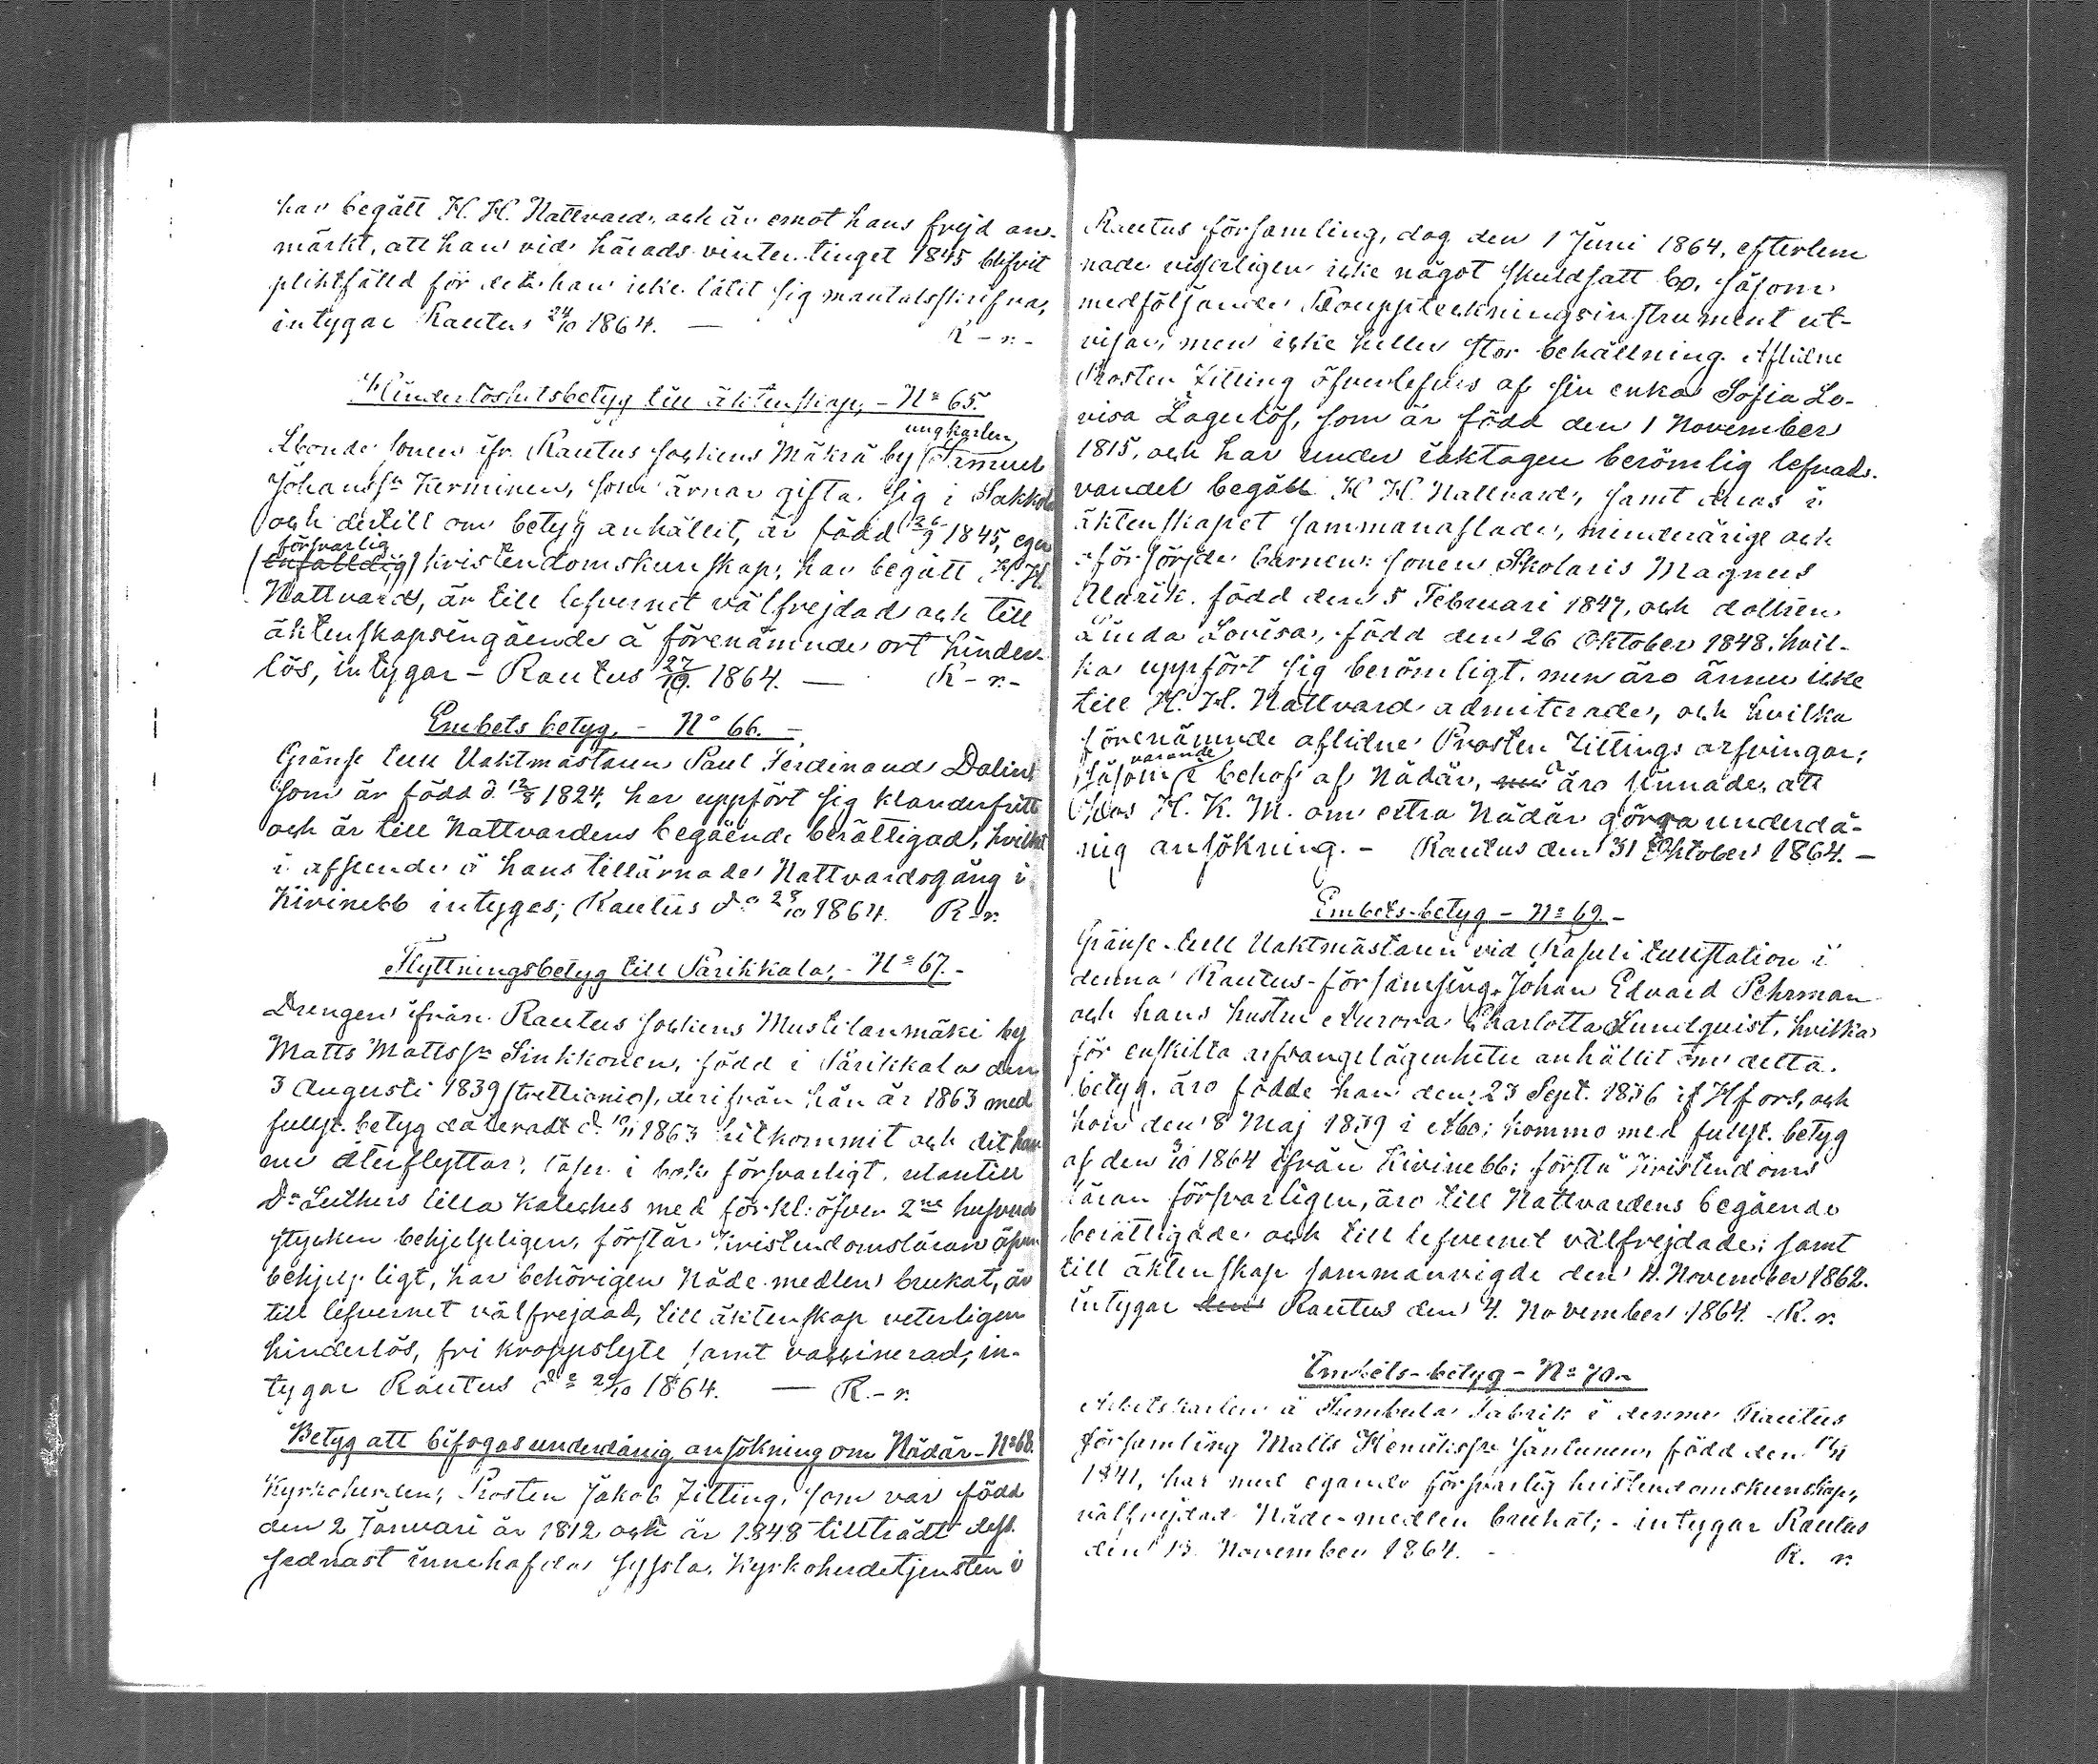 har begått H. H. Nattvard, och är emot hans frejd an-
märkt, att han vid härads vintertinget 1845 blifvit
pliktfälld för det han icke låtit sig mantalsskrifva,
intygar Rautus 24/10 1864. — R-n.-
Hinderlöshetsbetyg till äktenskap, - No 65.
ungkarlen
Bondesonen ifr. Rautus sockens Mäkrä by Samuel
Johanss:n Kerminen, som ärnar gifta sig i Sakkola
och dertill om betyg anhållit, är född 26/9 1845, eger
försvarlig
(enfalldig) kristendomskunskap, har begått H. H.
Nattvard, är till lefvernet välfrejdad och till
äktenskapsingående å förenämnde ort hinder-
lös, intygar - Rautus 27/10. 1864. — R-n.-
Embets betyg. - No 66. -
Gränse tull Vaktmästaren Paul Ferdinand Dalin
som är född d. 12/8 1824, har uppfört sig klanderfritt
och är till Nattvardens begående berättigad, hvilket
i afseende å hans tillärnade Nattvardsgång i
Kivinebb intyges; Rautus d:o 28/10 1864. R-n.
Flyttningsbetyg till Parikkala, - No 67. -
Drengen ifrån Rautus sockens Mustilanmäki by
Matts Mattss:n Sinkkonen, född i Parikkala den
3 Augusti 1839 (trettionio), derifrån han år 1863 med
fullst. betyg dateradt d. 10/11 1863 hitkommit och dit han
nu återflyttar, läser i bok försvarligt, utantill
D:r Luthers lilla Kateches med förkl: öfver 2ne hufvud
stycken behjelpligen, förstår Kristendomsläran äfven
behjelpligt, har behörigen Nåde-medlen brukat, är
till lefvernet välfrejdad, till äktenskap veterligen
hinderlös, fri kroppslyte samt vaccinerad; in-
tygar Rautus d:o 29/10 1864. — R.-n.
Betyg att bifogas underdånig ansökning om Nådår - No 68.
Kyrkoherden, Prosten Jakob Zitting, som var född
den 2 Januari år 1812 och år 1848 tillträdt dess
sednast innehafda syssla, Kyrkoherdetjensten i
Rautus församling, dog den 1 Juni 1864, efterlem
nade visserligen icke något skuldsatt bo, såsom
medföljande Bouppteckningsinstrument ut-
visar, men icke heller stor behållning. Aflidne
Prosten Zitting öfverlefves af sin enka Sofia Lo-
visa Lagerlöf, som är född den 1 November
1815, och har under iakttagen berömlig lefnads-
vandel begått H. H. Nattvard, samt deras i
äktenskapet sammanaflade, minderårige och
oförsörjde barnen: sonen Skolaris Magnus
Alarik, född den 5 Februari 1847, och dottren
Linda Lovisa, född den 26 Oktober 1848, hvil-
ka uppfört sig berömligt, men äro ännu icke
till H. H. Nattvard admitterade, och hvilka
förenämnde aflidne Prosten Zittings arfvingar,
varande
såsom i behof af Nådår, nu äro sinnade, att
hos H. K. M. om extra Nådår göra underdå-
nig ansökning. - Rautus den 31 Oktober 1864. -
Embets-betyg - No 69. -
Gränse-tull Vaktmästaren vid Rasuli tullstation i
denna Rautus-församling, Johan Edvard Pehrman
och hans hustru Aurora Charlotta Lundquist, hvilka
för enskilta arfsangelägenheter anhållit om detta
betyg, äro födde han den 23 Sept. 1836 i Hfors, och
hon den 8 Maj 1839 i Åbo; kommo med fullst. betyg
af den /10 1864 ifrån Kivinebb; förstå Kristendoms
läran försvarligen, äro till Nattvardens begående
berättigade och till lefvernet välfrejdade; samt
till äktenskap sammanvigde den November 1862.
intygar den Rautus den 4. November 1864. - R. n.
Embets-betyg - No 70. -
Arbetskarlen å Sumbula Fabrik i denna Rautus
församling Matts Henrikss:n Jäntunen, född den
1841, har med egande försvarlig kristendomskunskap,
välfrejdad Nåde-medlen brukat; - intygar Rautus
den 13. November 1864. - R. n.